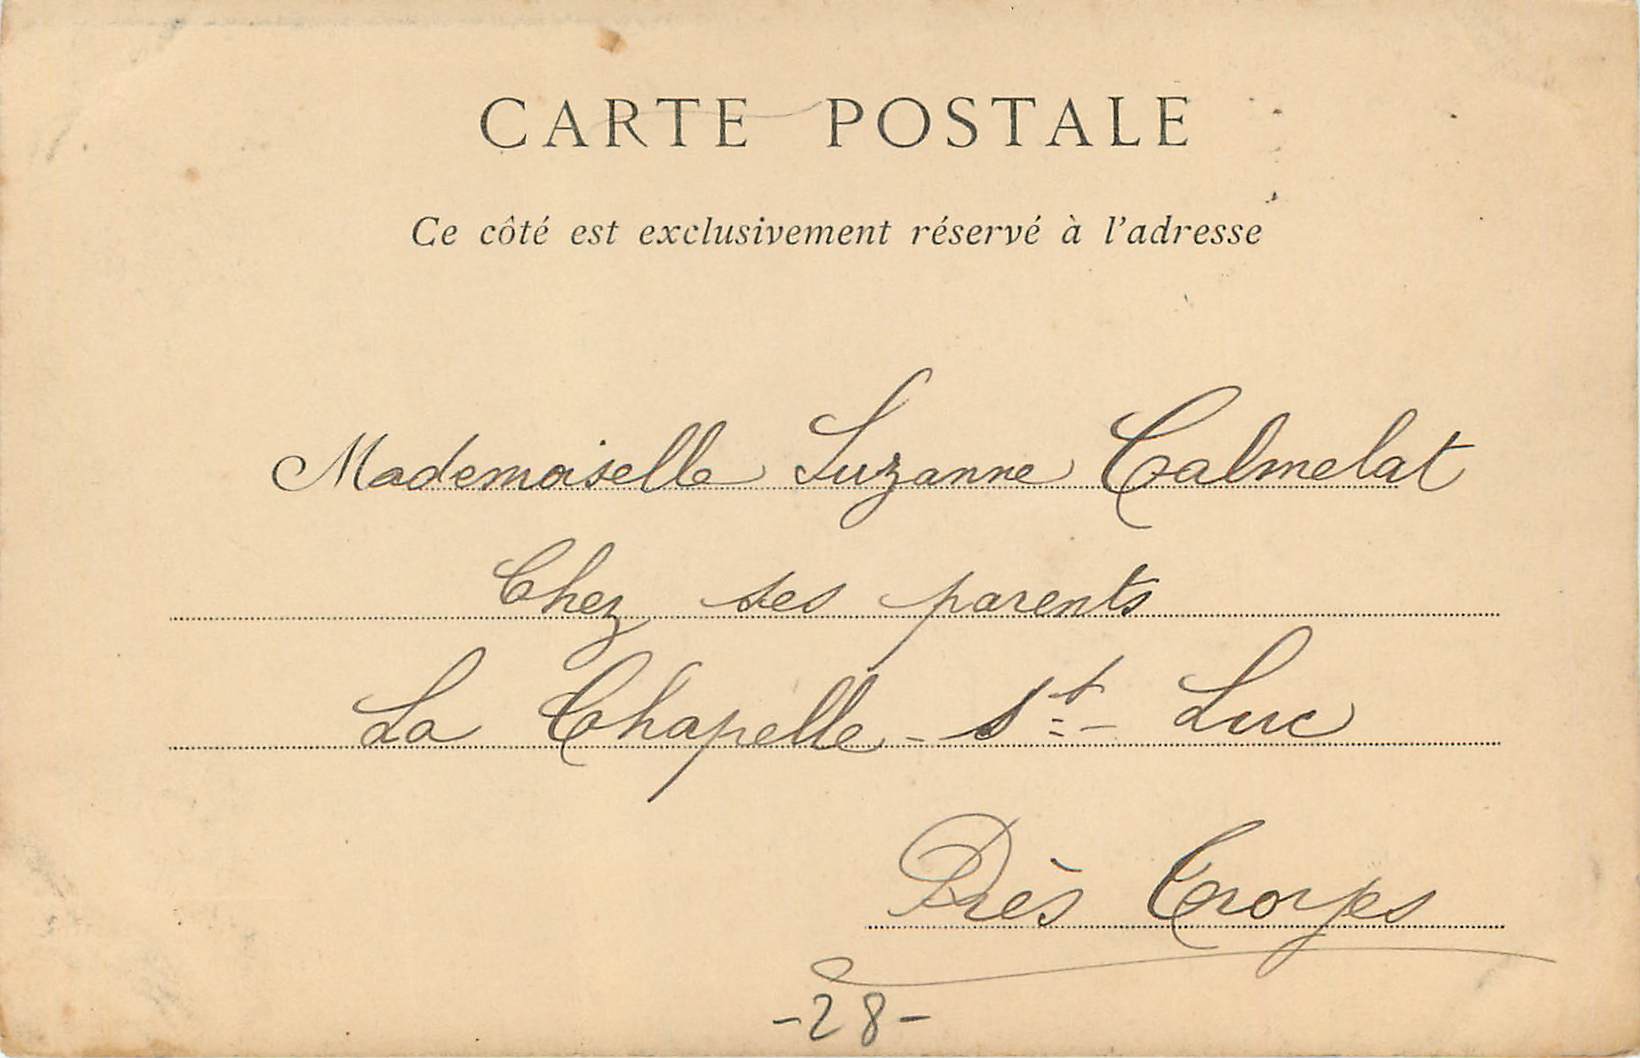 CARTE POSTALE
Ce côté est exclusivement réservé à l'adresse
Mademoiselle Suzanne Calmelat
Chez ses parents
La Chapelle - St - Luc
Près Troyes
- 28 -